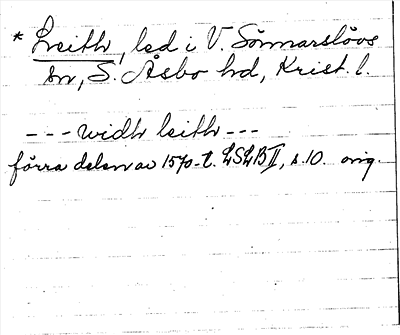 * Leith, led i V. Sönnarslövs
sn, S. Åsbo hd, Krist. l.
--- widh leith ---
förra delen av 1570-t. LSLB II, s. 10. orig.